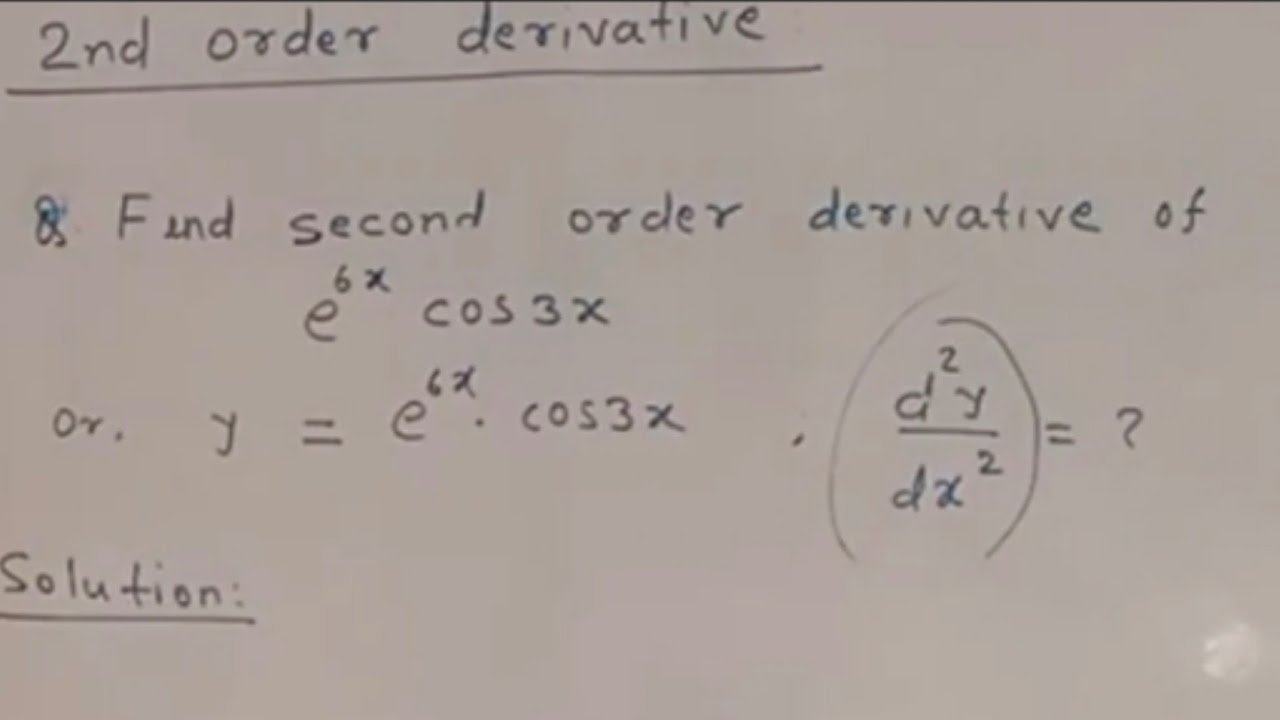 2nd order derivative
Q. Find second order derivative of
e^{6x} cos3x
Or. y = e^{6x} . cos3x . (d^2y/dx^2) = ?
Solution: